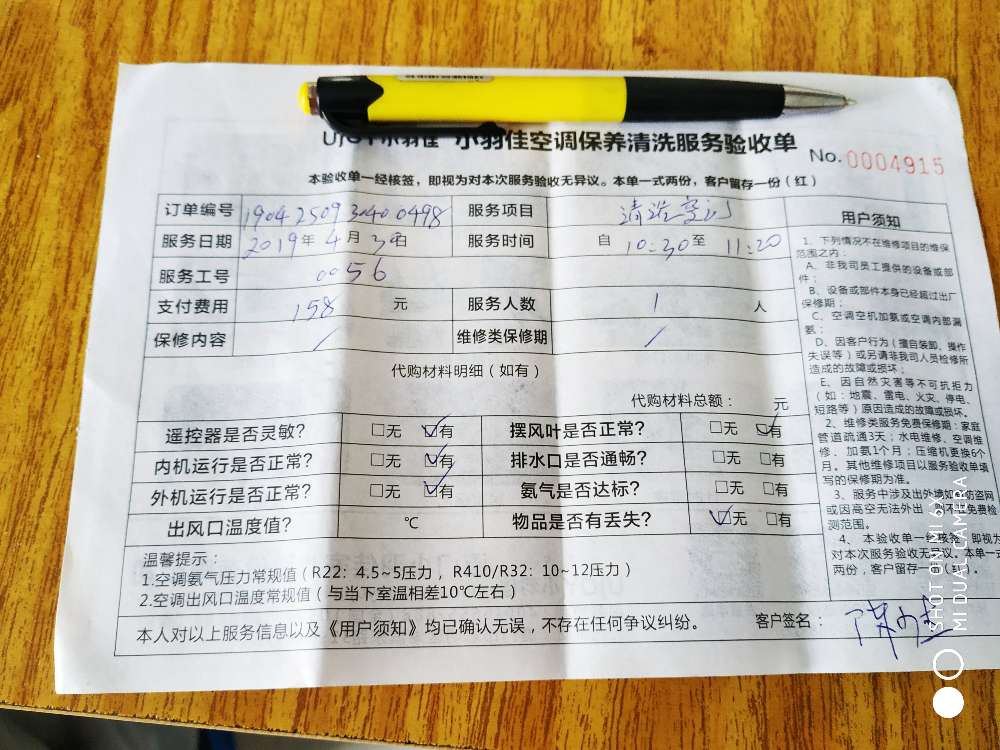 小羽佳空调保养清洗服务验收单 No.0004915
本验收单一经核签，即视为对本次服务验收无异议。本单一式两份，客户留存一份（红）
订单编号 服务项目 清洗空调
服务日期 2019年 4月 30日 服务时间 自 10:30至 11:20
服务工号 0056
支付费用 158 元 服务人数 1 人
保修内容 / 维修类保修期 /
代购材料明细（如有）
代购材料总额： 元
遥控器是否灵敏? □无 ☑有 摆风叶是否正常? □无 ☑有
内机运行是否正常? □无 ☑有 排水口是否通畅? □无 □有
外机运行是否正常? □无 ☑有 氨气是否达标? □无 □有
出风口温度值? ℃ 物品是否有丢失? ☑无 □有
温馨提示：
1.空调氨气压力常规值（R22：4.5~5压力，R410/R32：10~12压力）
2.空调出风口温度常规值（与当下室温相差10℃左右）
本人对以上服务信息以及《用户须知》均已确认无误，不存在任何争议纠纷。 客户签名：
用户须知
1、下列情况不在维修项目的维保
范围之内：
A、非我司员工提供的设备或部
件；
B、设备或部件本身已经超过出厂
保修期；
C、空调空机加氨或空调内部漏
氨；
D、因客户行为（擅自装卸、操作
失误等）或另请非我司人员检修所
造成的故障或损坏；
E、因自然灾害等不可抗拒力
（如：地震、雷电、火灾、停电、
短路等）原因造成的故障或损坏。
2、维修类服务免费保修期：家庭
管道疏通3天；水电维修、空调维
修、加氨1个月；压缩机更换6个
月。其他维修项目以服务验收单填
写的保修期为准。
3、服务中涉及出外墙如防盗网
或因高空无法外出，不在免费检
测范围。
4、本验收单一经核签，即视为
对本次服务验收无异议。本单一式
两份，客户留存一份（红）。
SHOT ON MI 6X
MI DUAL CAMERA